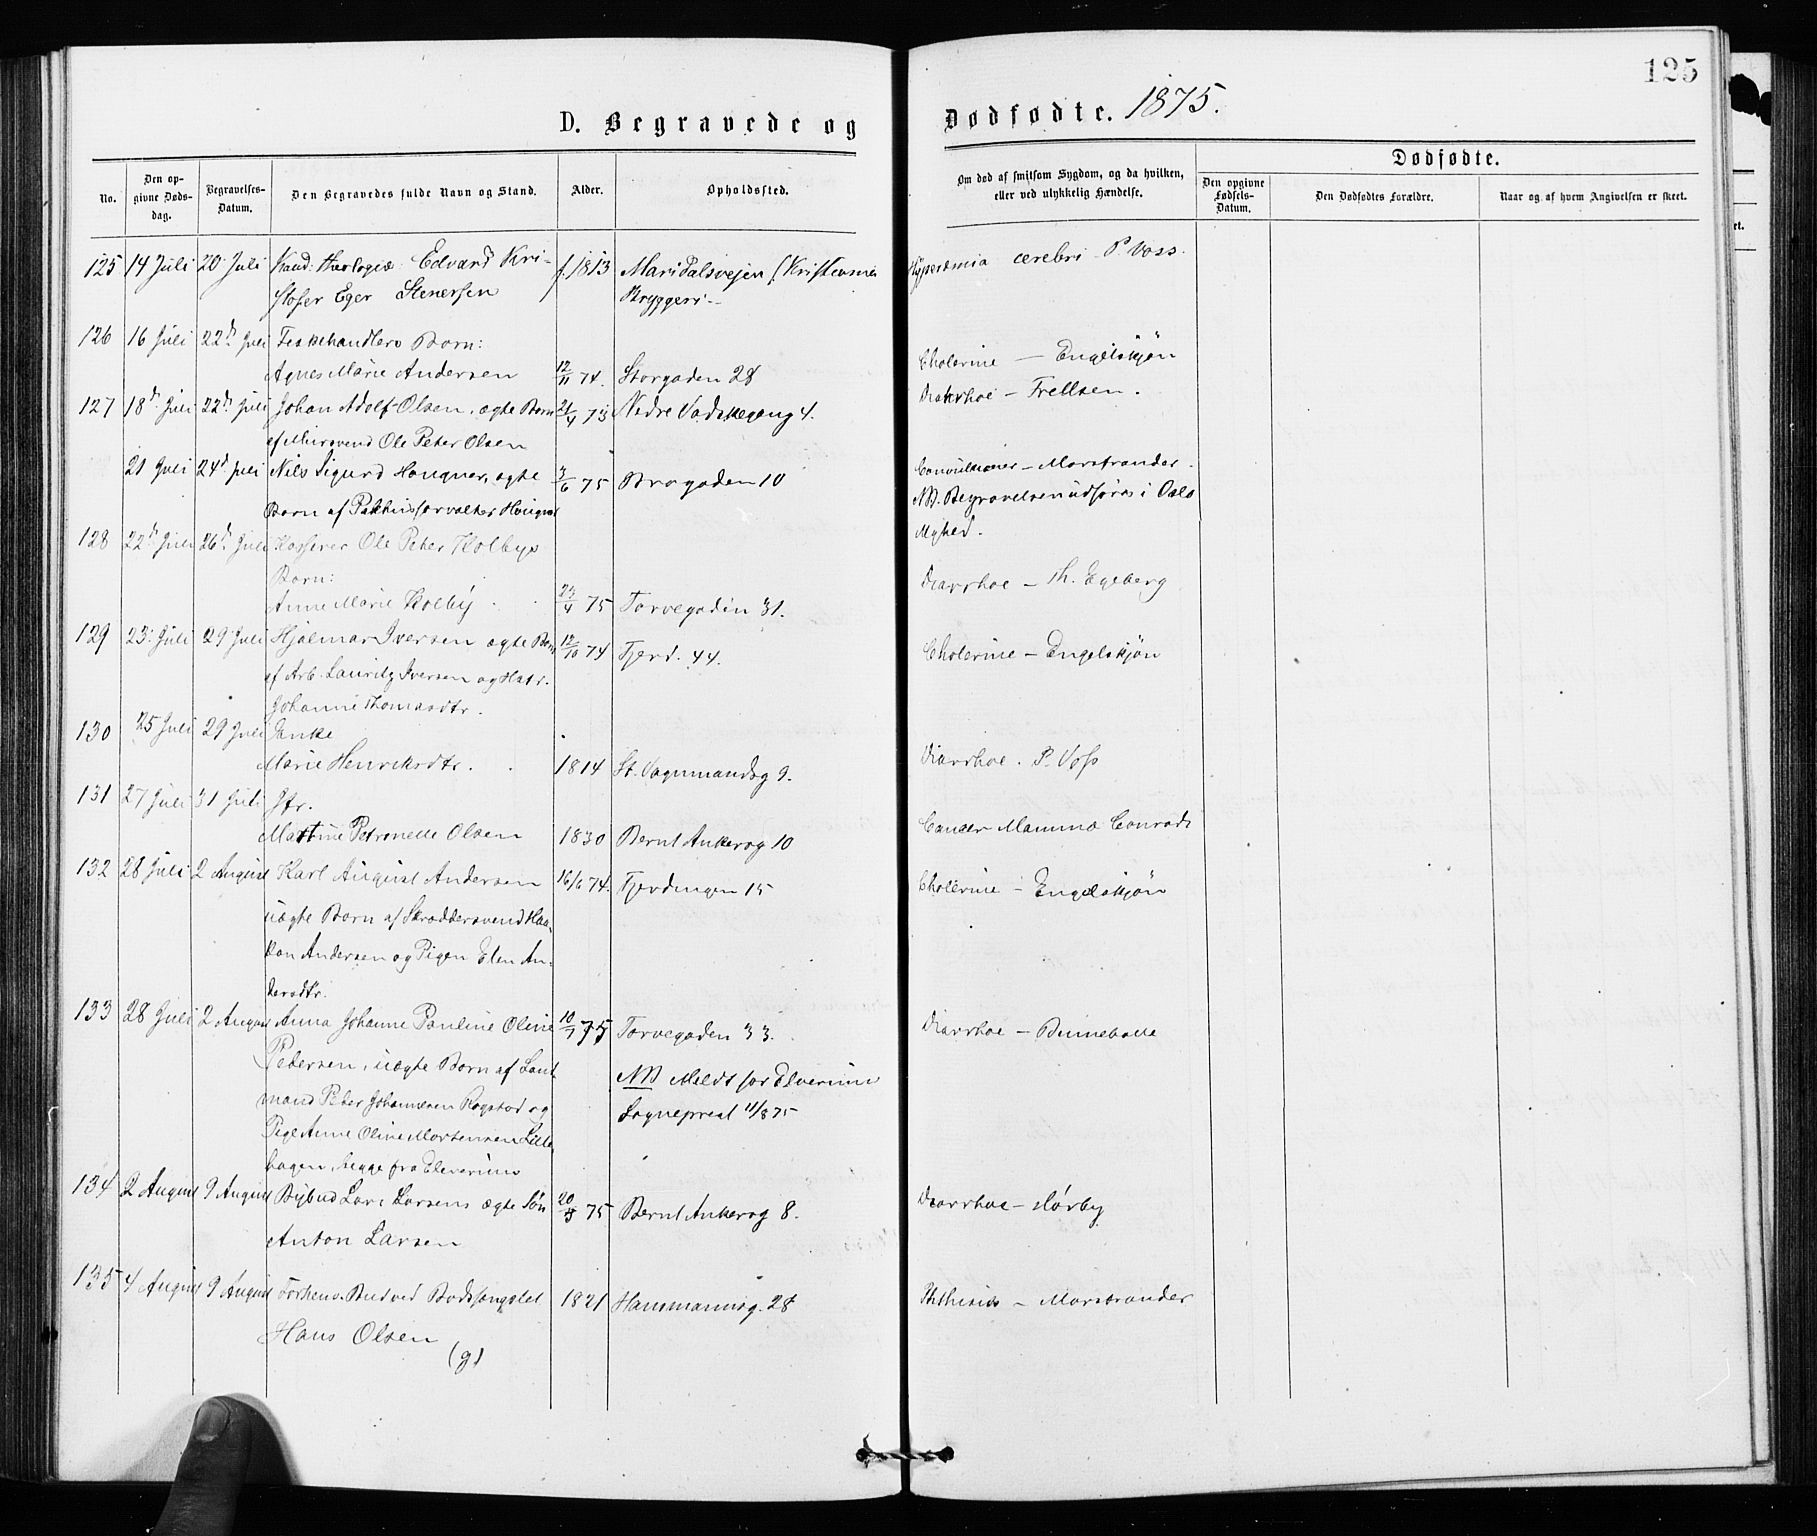 125
D. Begravede og Dødfødte. 1875.
No.
Den opgivne Dødsdag.
Begravelses-Datum.
Den Begravedes fulde Navn og Stand.
Alder.
Opholdssted.
Om død af smitsom Sygdom, og da hvilken, eller ved ulykkelig Hændelse.
Dødfødte.
Den opgivne Fødsels-Datum.
Den Dødfødtes Forældre.
Naar og af hvem Angivelsen er skeet.
125 14 Juli 20 Juli Kand: theologiæ: Edvard Kri- f. 1813 Maridalsvejen (Kristensens Hyperæmia cerebri P. Voss.
stofer Eger Stenersen Bryggeri
126 16 Juli 22d. Juli Fiskehandlers Barn:
Agnes Marie Andersen 12/11 74. Storgaden 28 Cholerine — Engelskjøn
127 18d. Juli 22d. Juli Johan Adolf Olsen, ægte Barn 21/4 73 Nedre Vadskegang 4. Diarrhoe — Frellsen.
af Mursvend Ole Peter Olsen
21 Juli 24d. Juli Nils Sigurd Hougner, ægte 3/6 75 Brogaden 10 Convulsioner — Marstrander.
Barn af Pakhusforvalter Hougner NB. Begravelsen udføres i Oslo
Mghed.
128 22d. Juli 26d. Juli Kasserer Ole Peter Kolbys
Barn:
Anne Marie Kolby 23/4 75 Torvegaden 31. Diarrhoe — Th. Egeberg
129 23. Juli 29 Juli Hjalmar Iversen ægte Barn 12/10 74 Fjerd. 44. Cholerine — Engelskjøn
af Arb. Lauritz Iversen og Hstr.
Johanne Thomasdtr.
130 25 Juli 29 Juli Enke
Marie Henriksdtr. 1814 St. Vognmandsg 9. Diarrhoe. P. Voss
131 27 Juli 31 Juli Jfr.
Martine Petronelle Olsen 1830 Bernt Ankersg 10 Cancer Mammæ Conradi
132 28 Juli 2 August Karl August Andersen 16/6 74. Fjerdingen 15 Cholerine — Engelskjøn
uægte Barn af Skræddersvend Haa-
kon Andersen og Pigen Elen An-
dersdtr.
133 28 Juli 2 August Anna Johanne Pauline Oline 10/7 75 Torvegaden 33. Diarrhoe — Binneballe
Petersen, uægte Barn af Land- NB Meldt for Elverums
mand Peter Johannesen Rogstad og Sogneprest 11/8 75
Pige Anne Oline Mortensen Lille-
hagen, begge fra Elverum
134 2 August 9 August Bybud Lars Larsens ægte Søn 20/5 75 Bernt Ankersg 8. Diarrhoe — Hørby
Anton Larsen
135 4 August 9 August Forhenv. Bud ved Bodsfængslet 1821 Hausmannsg. 28 Phthisis — Marstrander
Hans Olsen
(g)